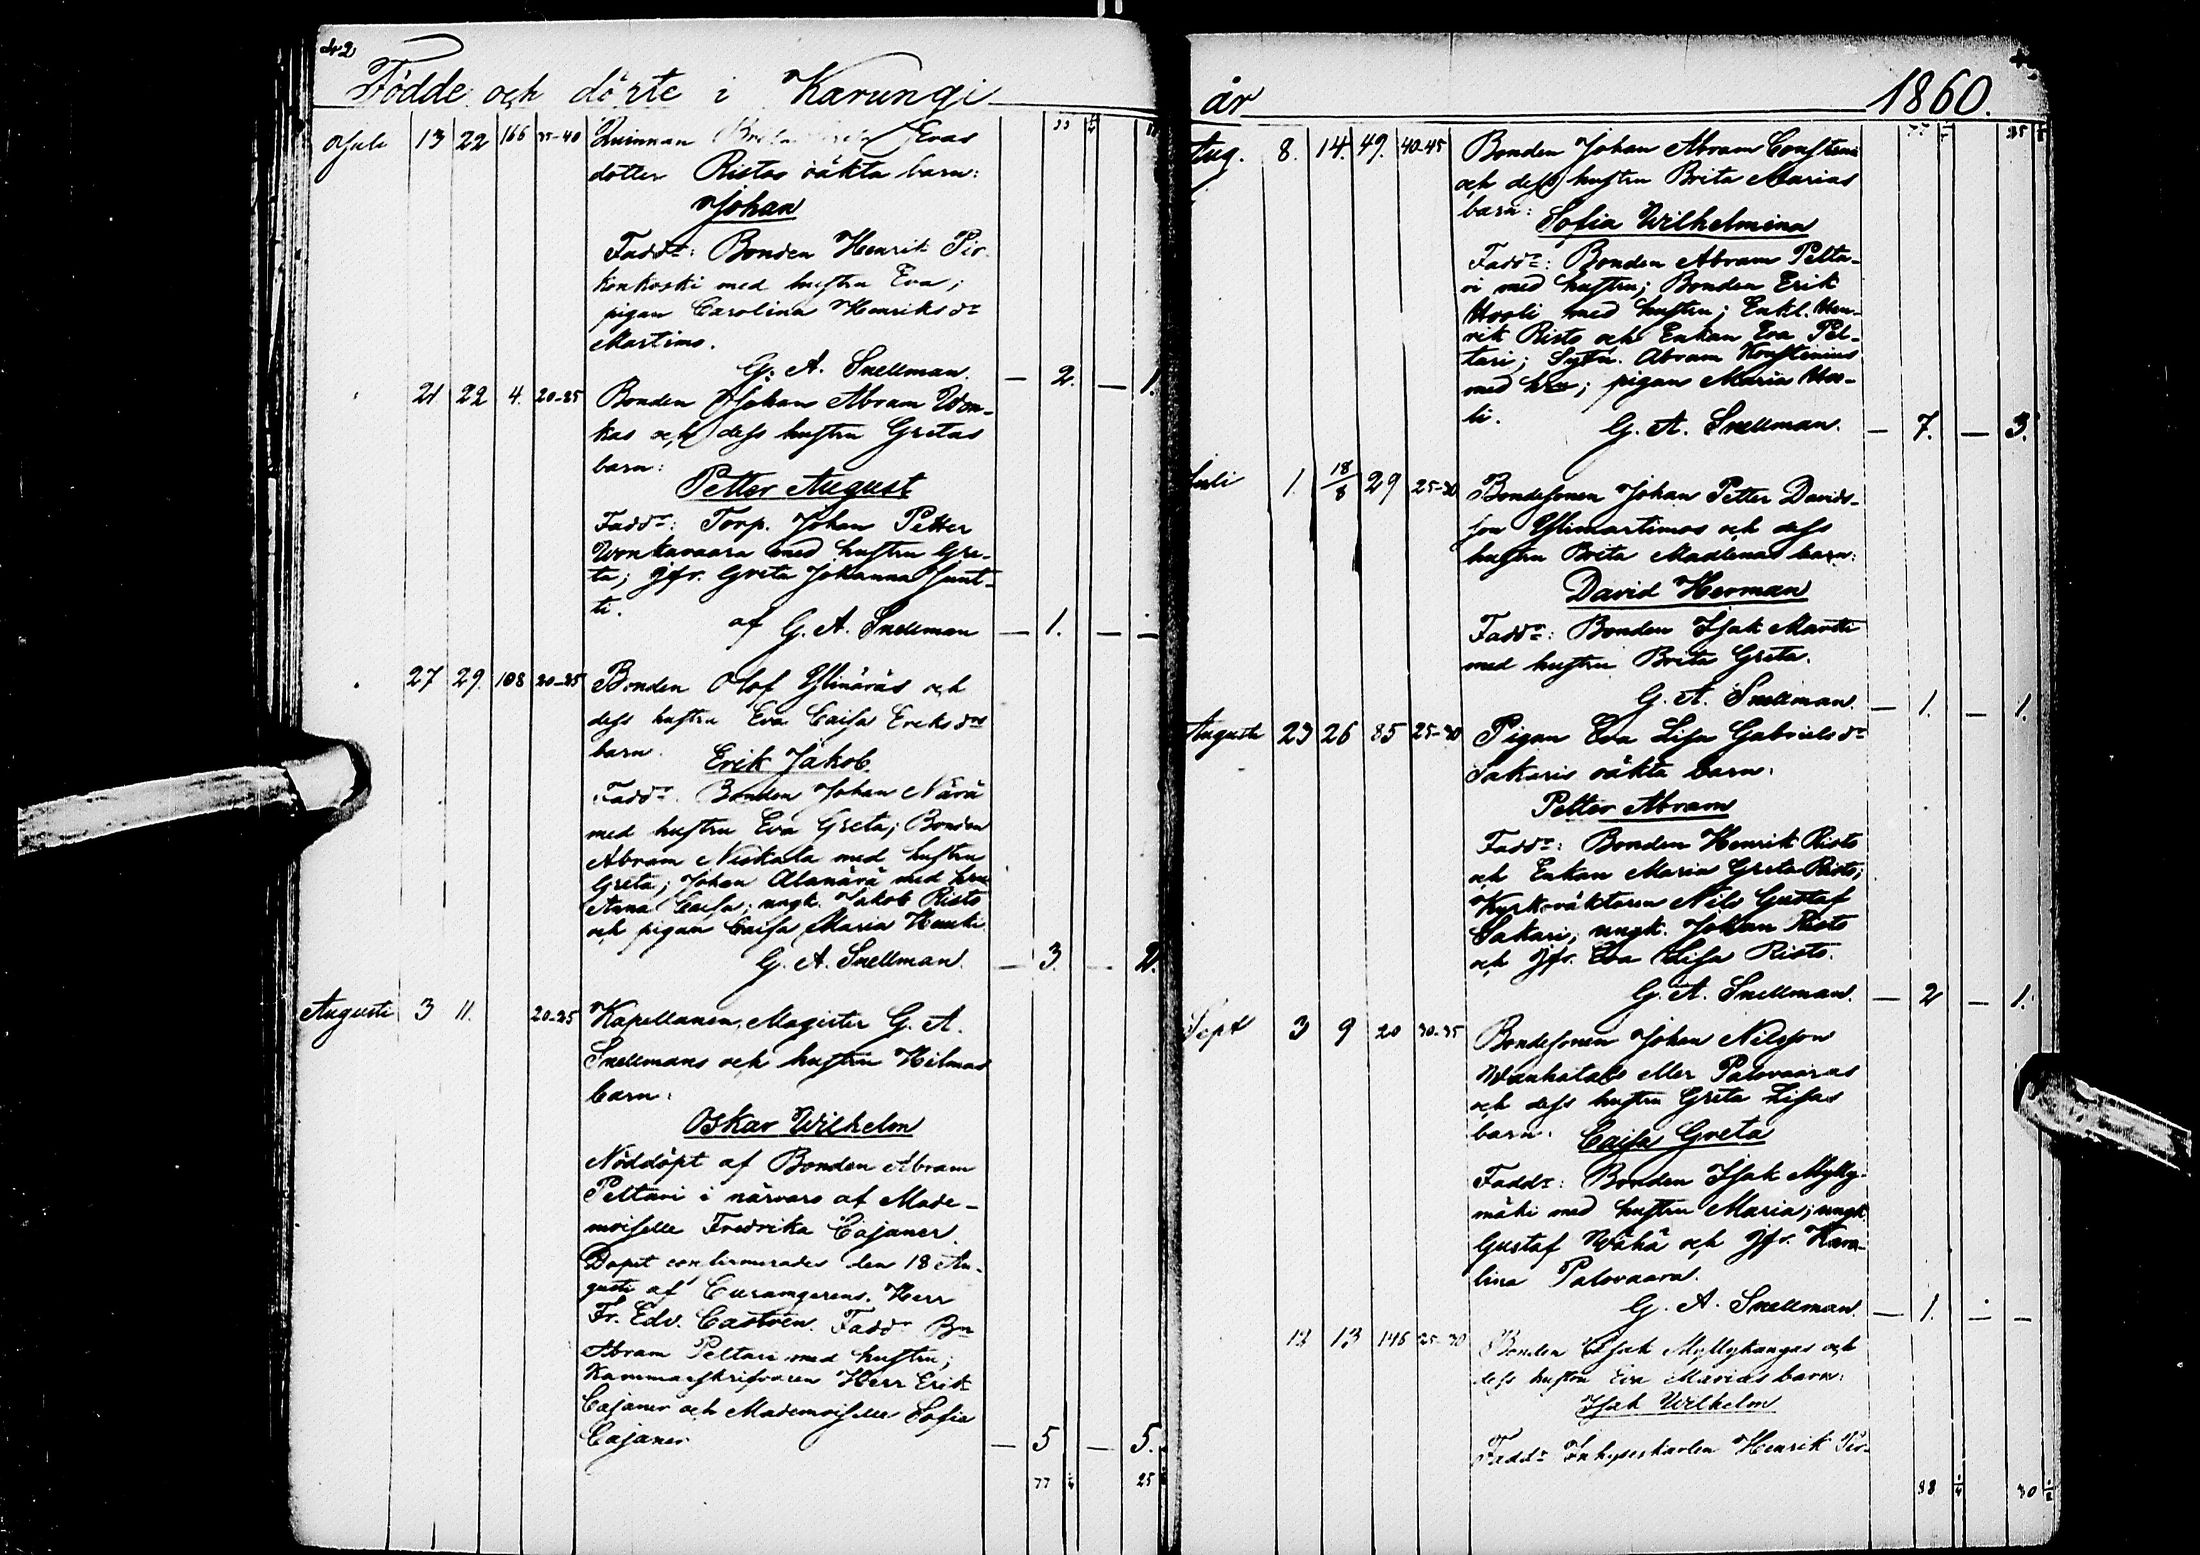 42
Födde och döpte i Karungi
Juli 13 22 166 35-40 Quinnan Evas
dotter Ristos oäkta barn:
Johan
Faddr: Bonden Henrik Pir-
konkoski med hustru Eva;
pigan Carolina Henriksdr
Martimo.
G. A. Snellman. — 2. — 1.
21 22 4. 20-25 Bonden Johan Abram Won-
kas och dess hustru Gretas
barn:
Petter August
Faddr: Torp. Johan Petter
Wonkavaara med hustru Gre-
ta; Jfr. Greta Johanna Junt-
ti.
af G. A. Snellman — 1. — —
27 29. 108 20-25 Bonden Olof Ylinäräs och
dess hustru Eva Caisa Eriksdrs
barn.
Erik Jakob.
Faddr. Bonden Johan Närä
med hustru Eva Greta; Bonden
Abram Niskala med hustru
Greta; Johan Alanärä med hru
Anna Caisa; ungk. Jakob Risto
och pigan Caisa Maria Hauki
G. A. Snellman. — 3. — 2.
Augusti 3 11. 20-25 Kapellanen, Magister G. A.
Snellmans och hustru Hilmas
barn:
Oskar Wilhelm
Nöddöpt af Bonden Abram
Peltari i närvaro af Made-
moiselle Fredrika Cajaner.
Dopet confirmerades den 18 Au-
gusti af Herr
Fr. Edv. Castrén. Faddr Bn
Abram Peltari med hustru;
Kammarskrifvaren Herr Erik
Cajaner och Mademoiselle Sofia
Cajaner — 5 — 5.
77 25
år 1860.
Aug. 8. 14. 49. 40-45 Bonden Johan Abram
och dess hustru Brita Marias
barn:
Sofia Wilhelmina
Faddr: Bonden Abram Pelta-
ri med hustru; Bonden Erik
Hooli med hustru; Enkl. Hen-
rik Risto och Enkan Eva Pel-
tari; Abram Konstenius
med hru; pigan Maria Hoo-
li.
G. A. Snellman. — 7. — 3.
Juli 1. 18/8 29 25-30 Bondesonen Johan Petter Davids-
son Ylimartimos och dess
hustru Brita Madlenas barn:
David Herman
Faddr: Bonden Isak Martti
med hustru Brita Greta.
G. A. Snellman. — 1. — 1.
Augusti 23 26 85 25-30 Pigan Eva Lisa Gabrielsdr
Sakaris oäkta barn:
Petter Abram
Faddr: Bonden Henrik Risto
och Enkan Maria Greta Risto;
Kyrkoväktaren Nils Gustaf
Sakari; ungk. Johan Risto
och Jfr. Eva Lisa Risto.
G. A. Snellman. — 2 — 1.
Sept 3 9 20 30-35 Bondesonen Johan Nilsson
Wanhatalo eller Palovaaras
och dess hustru Greta Lisas
barn:
Caisa Greta
Faddr: Bonden Isak Mylly-
mäki med hustru Maria; ungk.
Gustaf Wähä och Jfr. Karo-
lina Palovaara.
G. A. Snellman — 1. — —
12 13 146 25-30 Bonden Isak Myllykangas och
dess hustru Eva Marias barn:
Isak Wilhelm
Faddr Inhyseskarlen Henrik Pir-
88 30